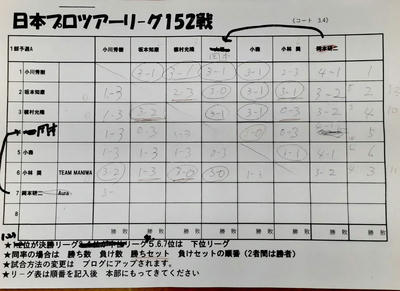 日本プロツアーリーグ152戦
(コート 3.4)
1部予選A
小川秀樹 坂本知慶 小森 小林 岡本研二
1 小川秀樹 3-1 3-1 3-1 3-1 2-3 4-1 1
2 坂本知慶 1-3 2-3 3-0 3-1 3-1 3-2 2
3 1-3 3-2 3-1 3-1 0-3 3-2 4
1-3 0-3 1-3 3-0 0-3 5
5 小森 1-3 1-3 1-3 1-3 4-1 6
6 小林 TEAM MANIWA 3-2 1-3 3-0 3-0 1-3 3-2 3
7 岡本研二 Aura
8
勝 敗 勝 敗 勝 敗 勝 敗 勝 敗 勝 敗 勝 敗
★ 位が決勝リーグ 5.6.7位は 下位リーグ
★同率の場合は 勝ち数 負け数 勝ちセット 負けセットの順番 (2者間は勝者)
★試合方法の変更は ブログにアップされます。
★リーグ表は順番を記入後 本部にもってきてください